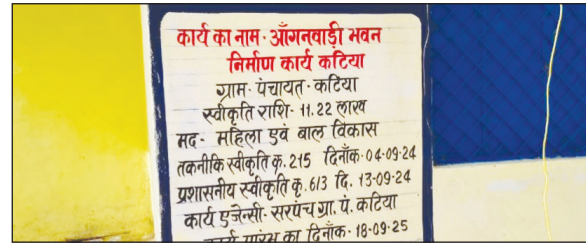 कार्य का नाम- आँगनवाड़ी भवन
निर्माण कार्य कटिया
ग्राम- पंचायत- कटिया
स्वीकृति राशि- 11.22 लाख
मद- महिला एवं बाल विकास
तकनीकि स्वीकृति क्र. 215 दिनाँक- 04-09-24
प्रशासनीय स्वीकृति कृ. 613 दि. 13-09-24
कार्य एजेन्सी- सरपंच ग्रा. पं. कटिया
कार्य प्रारंभ का दिनाँक- 18-09-25